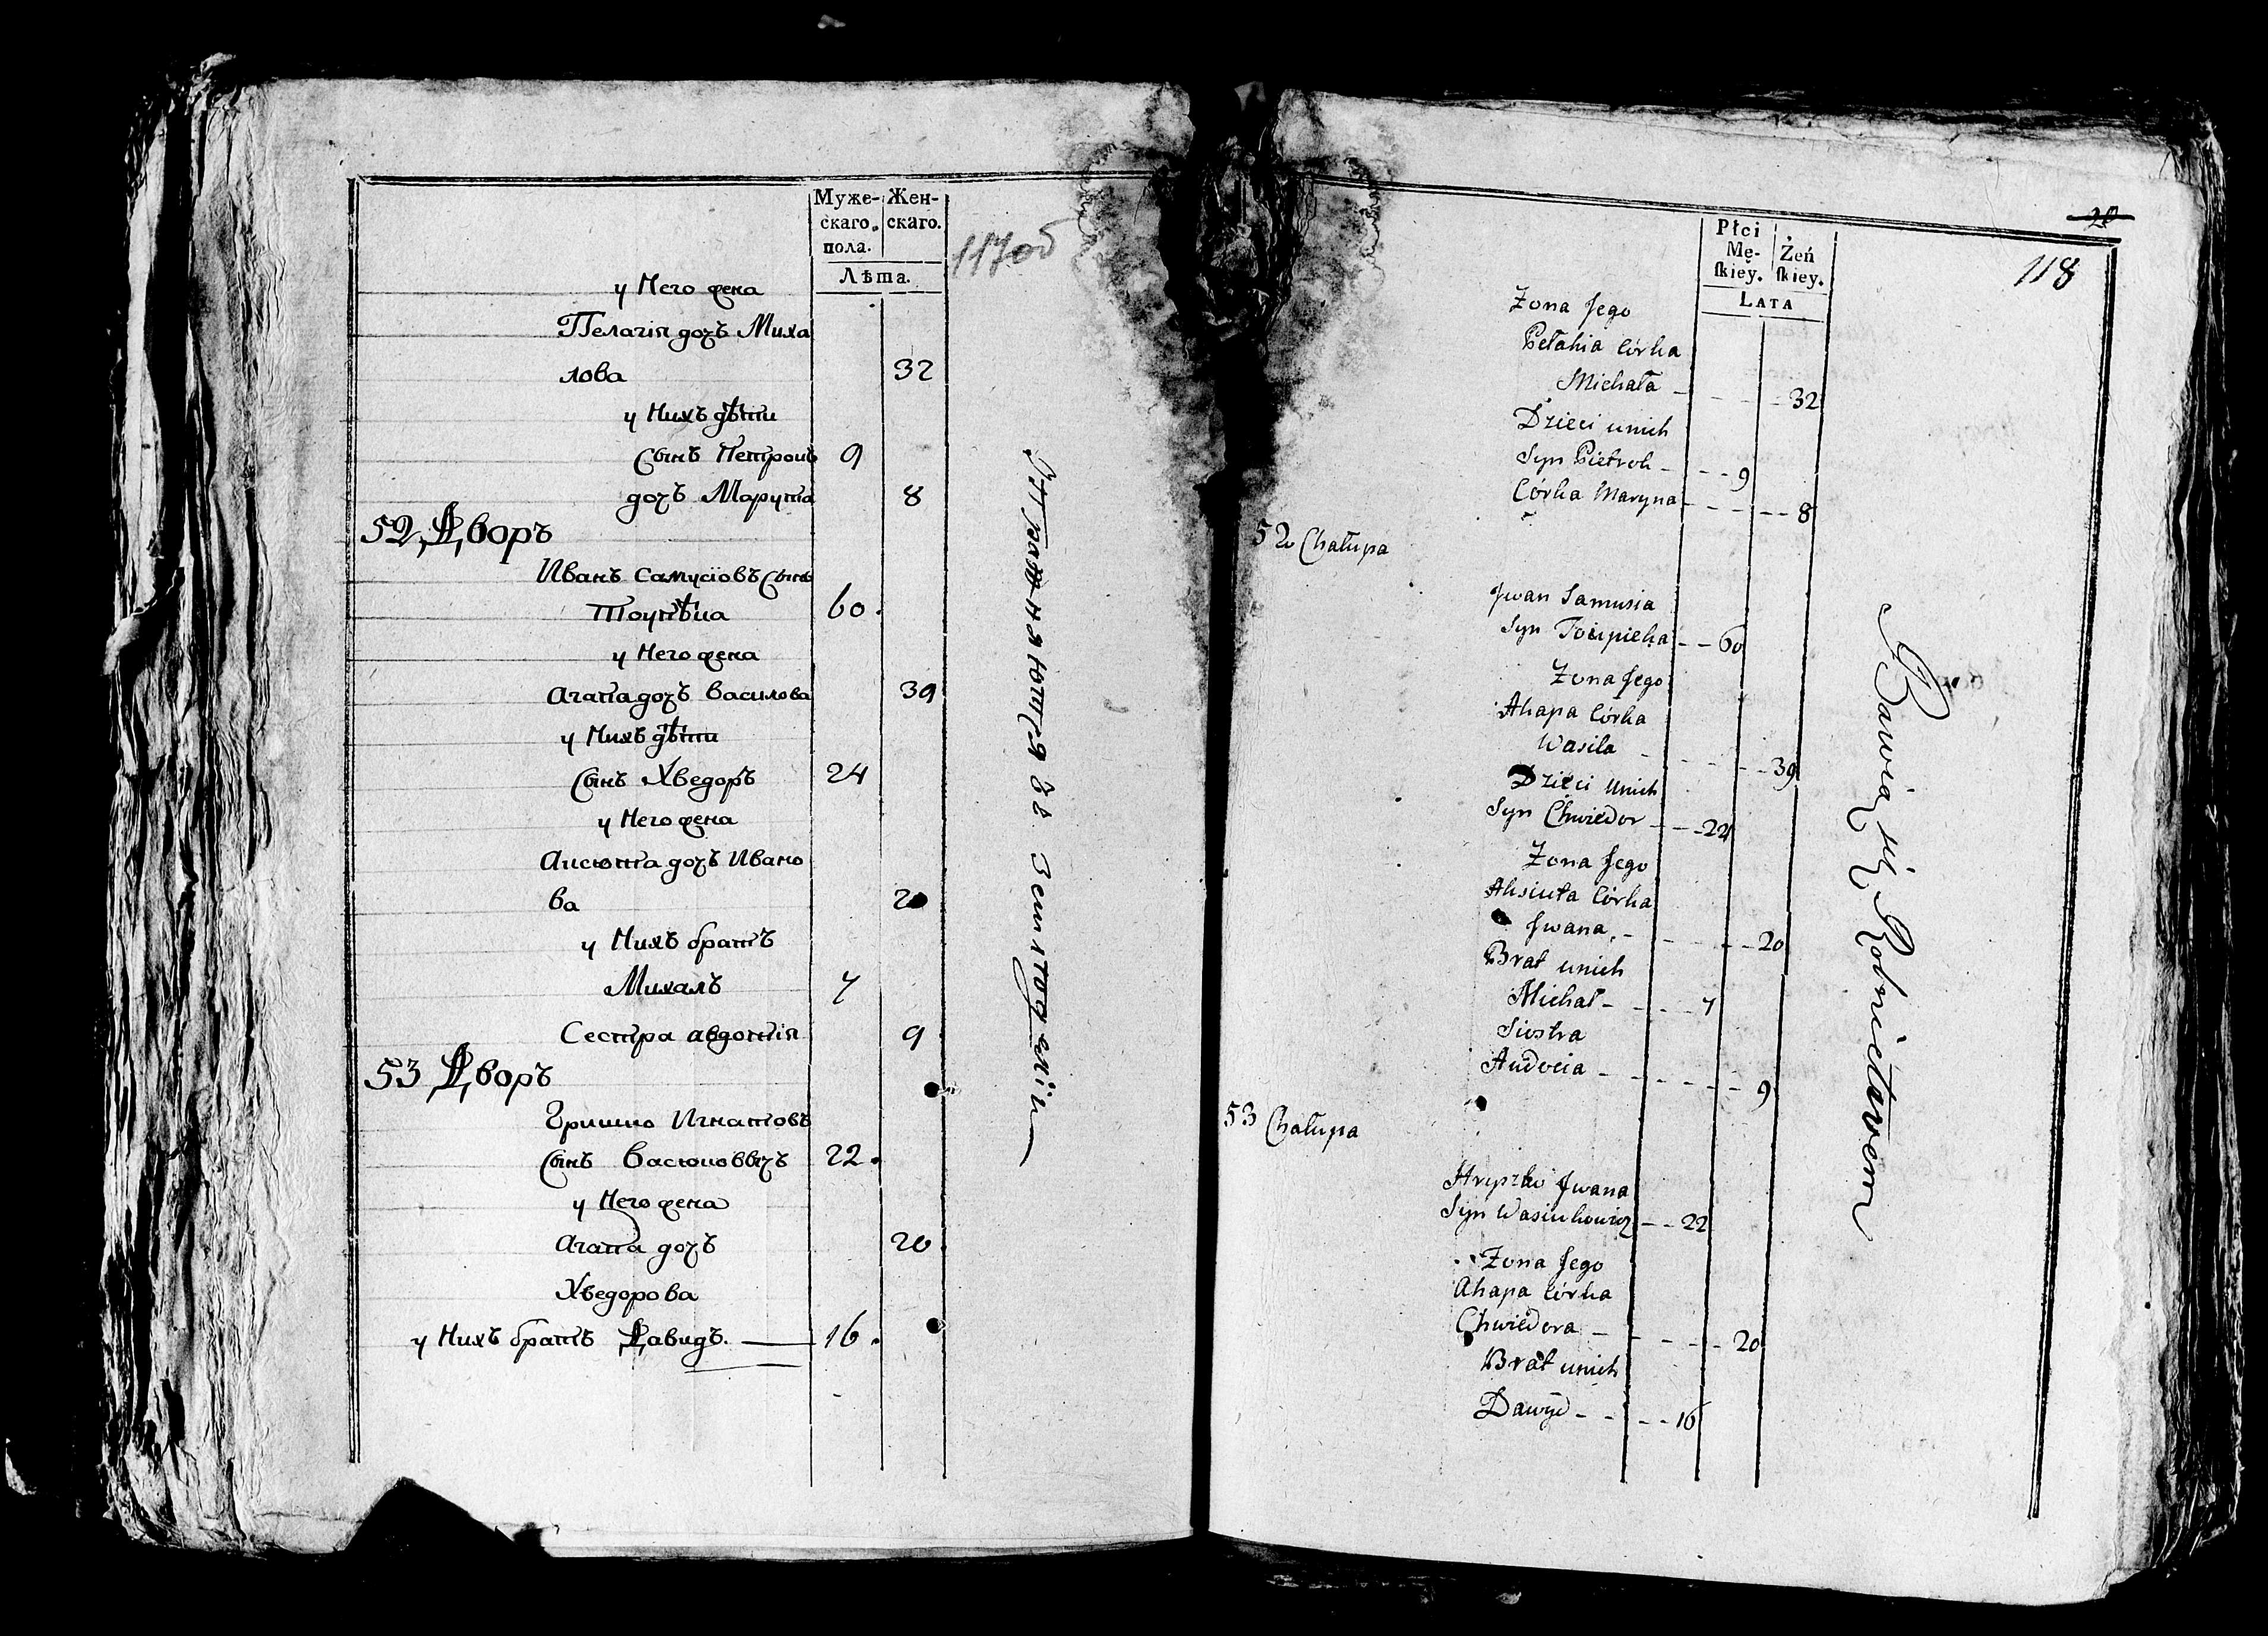 Муже-
скаго.
пола.
Жен-
скаго.
Лѣта.
117об
у Него жена
Пелагія дочь Миха
лова 32
у Нихъ дѣти
Сынъ Петрокъ 9
дочь Марута 8
52, Дворъ
Иванъ Самусіовъ Сынъ
60.
у Него жена
Агапа дочь Василова 39
у Нихъ дѣти
Сынъ Хведоръ 24
у Него жена
Аксюта дочь Ивано
ва 20
у Нихъ братъ
Михалъ 7
Сестра авдотія 9
53 Дворъ
Гришко Игнатовъ
Сынъ Васюковичъ 22.
у Него жена
Агапа дочь 20
Хведорова
у Нихъ братъ Давидъ. 16.
Упражняются въ Земледѣліи
20
118
Płci
Mę-
ſkiey.
Żeń
ſkiey.
LATA
Żona Jego
Pełahia Córka
Michała - - - - 32
Dzieci unich
Syn Pietrok - - - 9
Córka Maryna - - - - - 8
52 Chałupa
Jwan Samusia
Syn Toupieka - - 60
Żona Jego
Ahapa Córka
Wasila - - - - 39
Dzieci Unich
Syn Chwiedor - - - 24
Żona Jego
Aksiuta Córka
Jwana - - - - - 20
Brat unich
Michał - - - - 7
Siostra
Audocia - - - - - - 9
53 Chałupa
Hryszko Jwana
Syn Wasiukowicz - - 22
Żona Jego
Ahapa Córka
Chwiedora - - - - - 20
Brat unich
Dawyd - - - - 16
Bawią się Rolnictwem